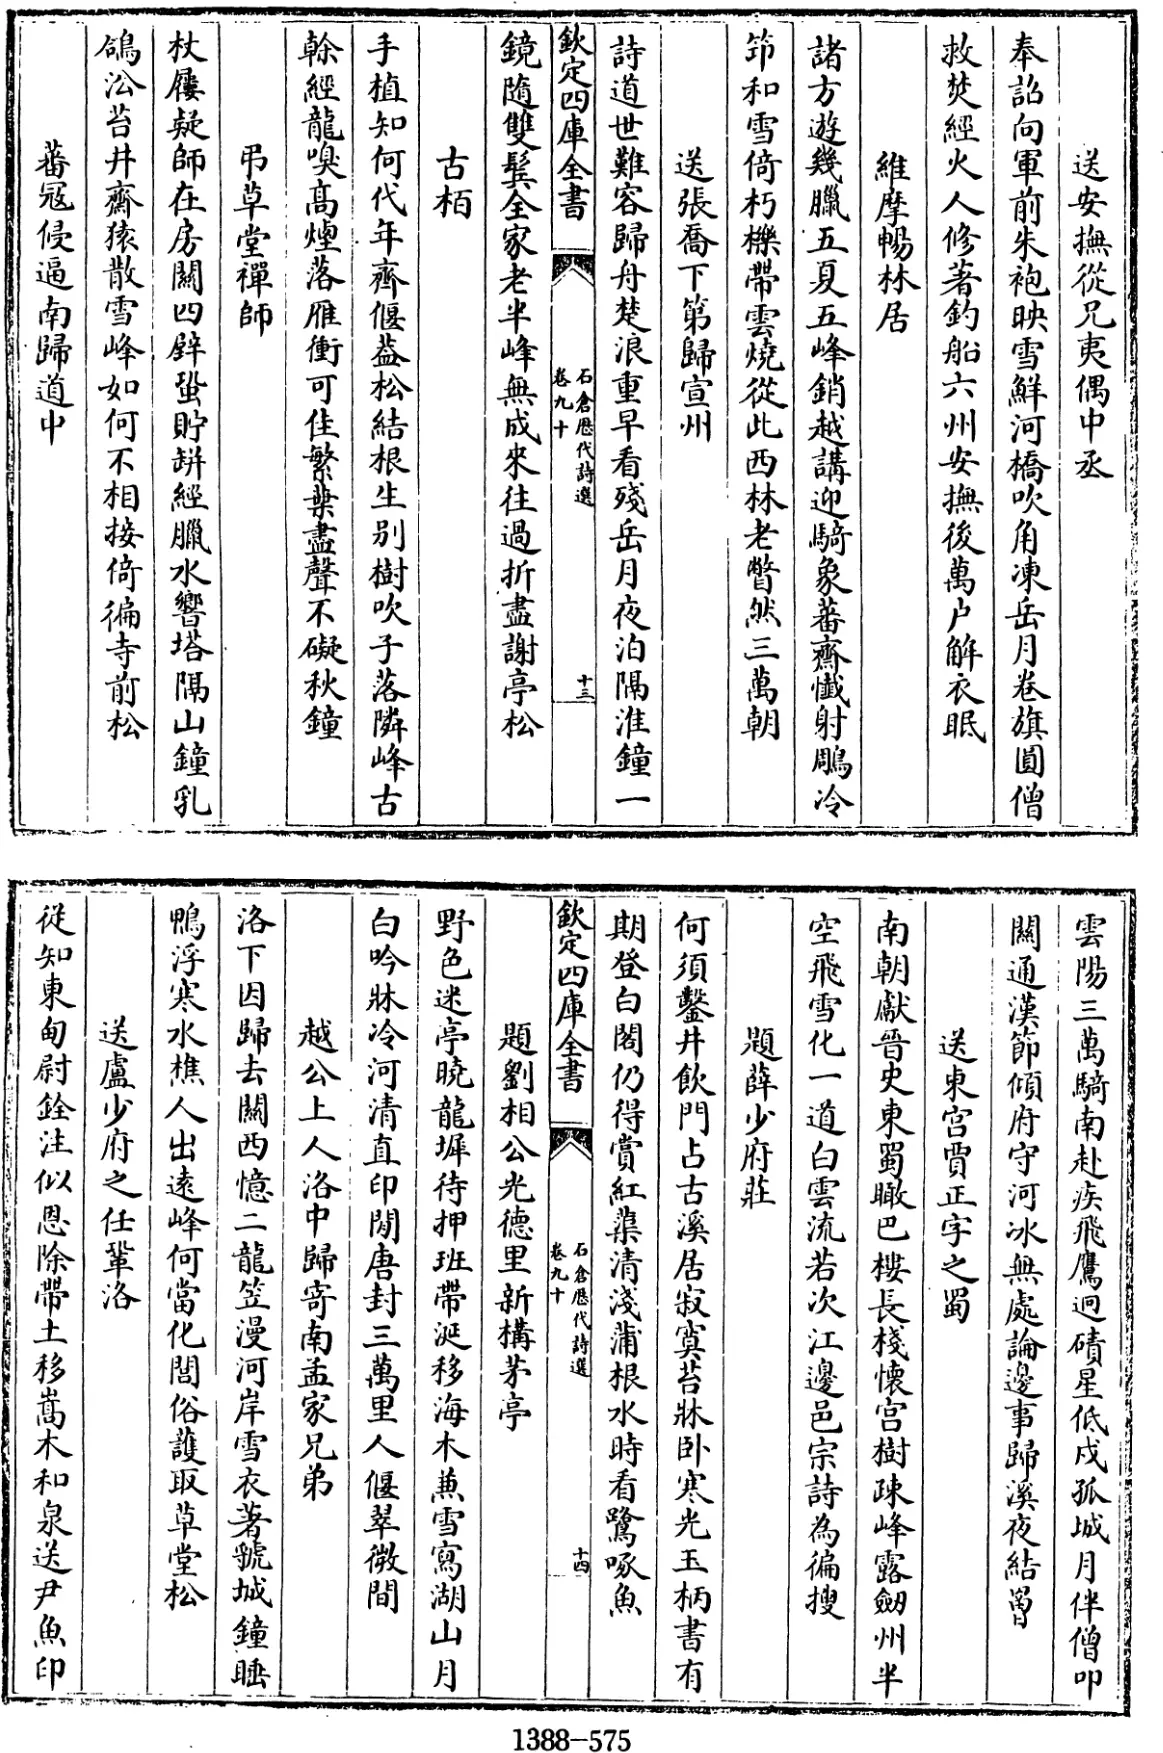 送安撫從兄夷偶中丞
奉詔向軍前朱袍映雪鮮河橋吹角凍岳月卷旗圓僧
救焚經火人修著釣船六州安撫後萬户解衣眠
維摩暢林居
諸方遊幾臘五夏五峰銷越講迎騎象蕃齋懺射鵰冷
笻和雪倚朽櫟帶雲燒從此西林老瞥然三萬朝
送張喬下第歸宣州
詩道世難容歸舟楚浪重早看殘岳月夜泊隔淮鐘一
欽定四庫全書
石倉歷代詩選
卷九十
十三
鏡隨雙鬂全家老半峰無成來往過折盡謝亭松
古栢
手植知何代年齊偃蓋松結根生别樹吹子落隣峰古
榦經龍嗅高煙落雁衝可佳繁葉盡聲不礙秋鐘
弔草堂禪師
杖屨疑師在房關四辟蛩貯缾經臘水響塔隔山鐘乳
鴿沿苔井齋猿散雪峰如何不相接倚徧寺前松
蕃冦侵逼南歸道中
雲陽三萬騎南赴疾飛鷹迥磧星低戍孤城月伴僧叩
關通漢節傾府守河冰無處論邊事歸溪夜結罾
送東宮賈正字之蜀
南朝獻晉史東蜀瞰巴樓長棧懷宫樹疎峰露劒州半
空飛雪化一道白雲流若次江邊邑宗詩為徧搜
題薛少府莊
何須鑿井飲門占古溪居寂寞苔牀卧寒光玉柄書有
期登白閣仍得賞紅蕖清淺蒲根水時看鷺啄魚
欽定四庫全書
石倉歷代詩選
卷九十
十四
題劉相公光德里新構茅亭
野色迷亭曉龍墀待押班帶涎移海木兼雪寫湖山月
白吟牀冷河清直印閒唐封三萬里人偃翠微間
越公上人洛中歸寄南孟家兄弟
洛下因歸去關西憶二龍笠漫河岸雪衣著虢城鐘睡
鴨浮寒水樵人出遠峰何當化閭俗護取草堂松
送盧少府之任鞏洛
從知東甸尉銓注似恩除帶土移嵩木和泉送尹魚印
1388-575